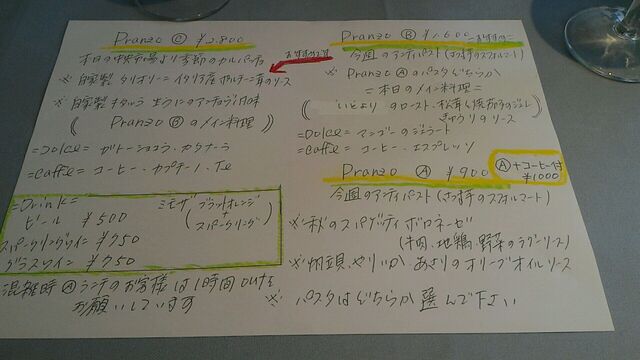 Pranzo Ⓒ ¥2.800
本日の中央市場より季節のカルパッチョ
おすすめです
※ 自家製 タリオリーニ イタリア産ポルチーニ茸のソース
※ 自家製
(Pranzo Ⓑ のメイン料理)
=Dolce= ガトーショコラ、カタラーナ
=Caffe= コーヒー、カプチーノ、Te
=Drink=
ビール ¥500
スパークリングワイン ¥750
グラスワイン ¥750
ミモザ (ブラッドオレンジ
+
スパークリング)
混雑時Ⓐランチのお客様は1時間outを
お願いしています
Pranzo Ⓑ ¥1.600 -おすすめ-
今週のアンティパスト (さつま芋のスフォルマート)
※ Pranzo Ⓐ のパスタどちらか
=本日のメイン料理=
のロースト、松茸と焼茄子のジュレ
きゅうりのソース
=Dolce= マンゴーのジェラート
=Caffe= コーヒー、エスプレッソ
Pranzo Ⓐ ¥900
Ⓐ+コーヒー付
¥1000
今週のアンティパスト (さつま芋のスフォルマート)
※ 秋のスパゲッティ ボロネーゼ
(牛肉、地鶏、野菜のラグーソース)
※ 帆立、やりいか、あさりのオリーブオイルソース
※ パスタはどちらか選んで下さい